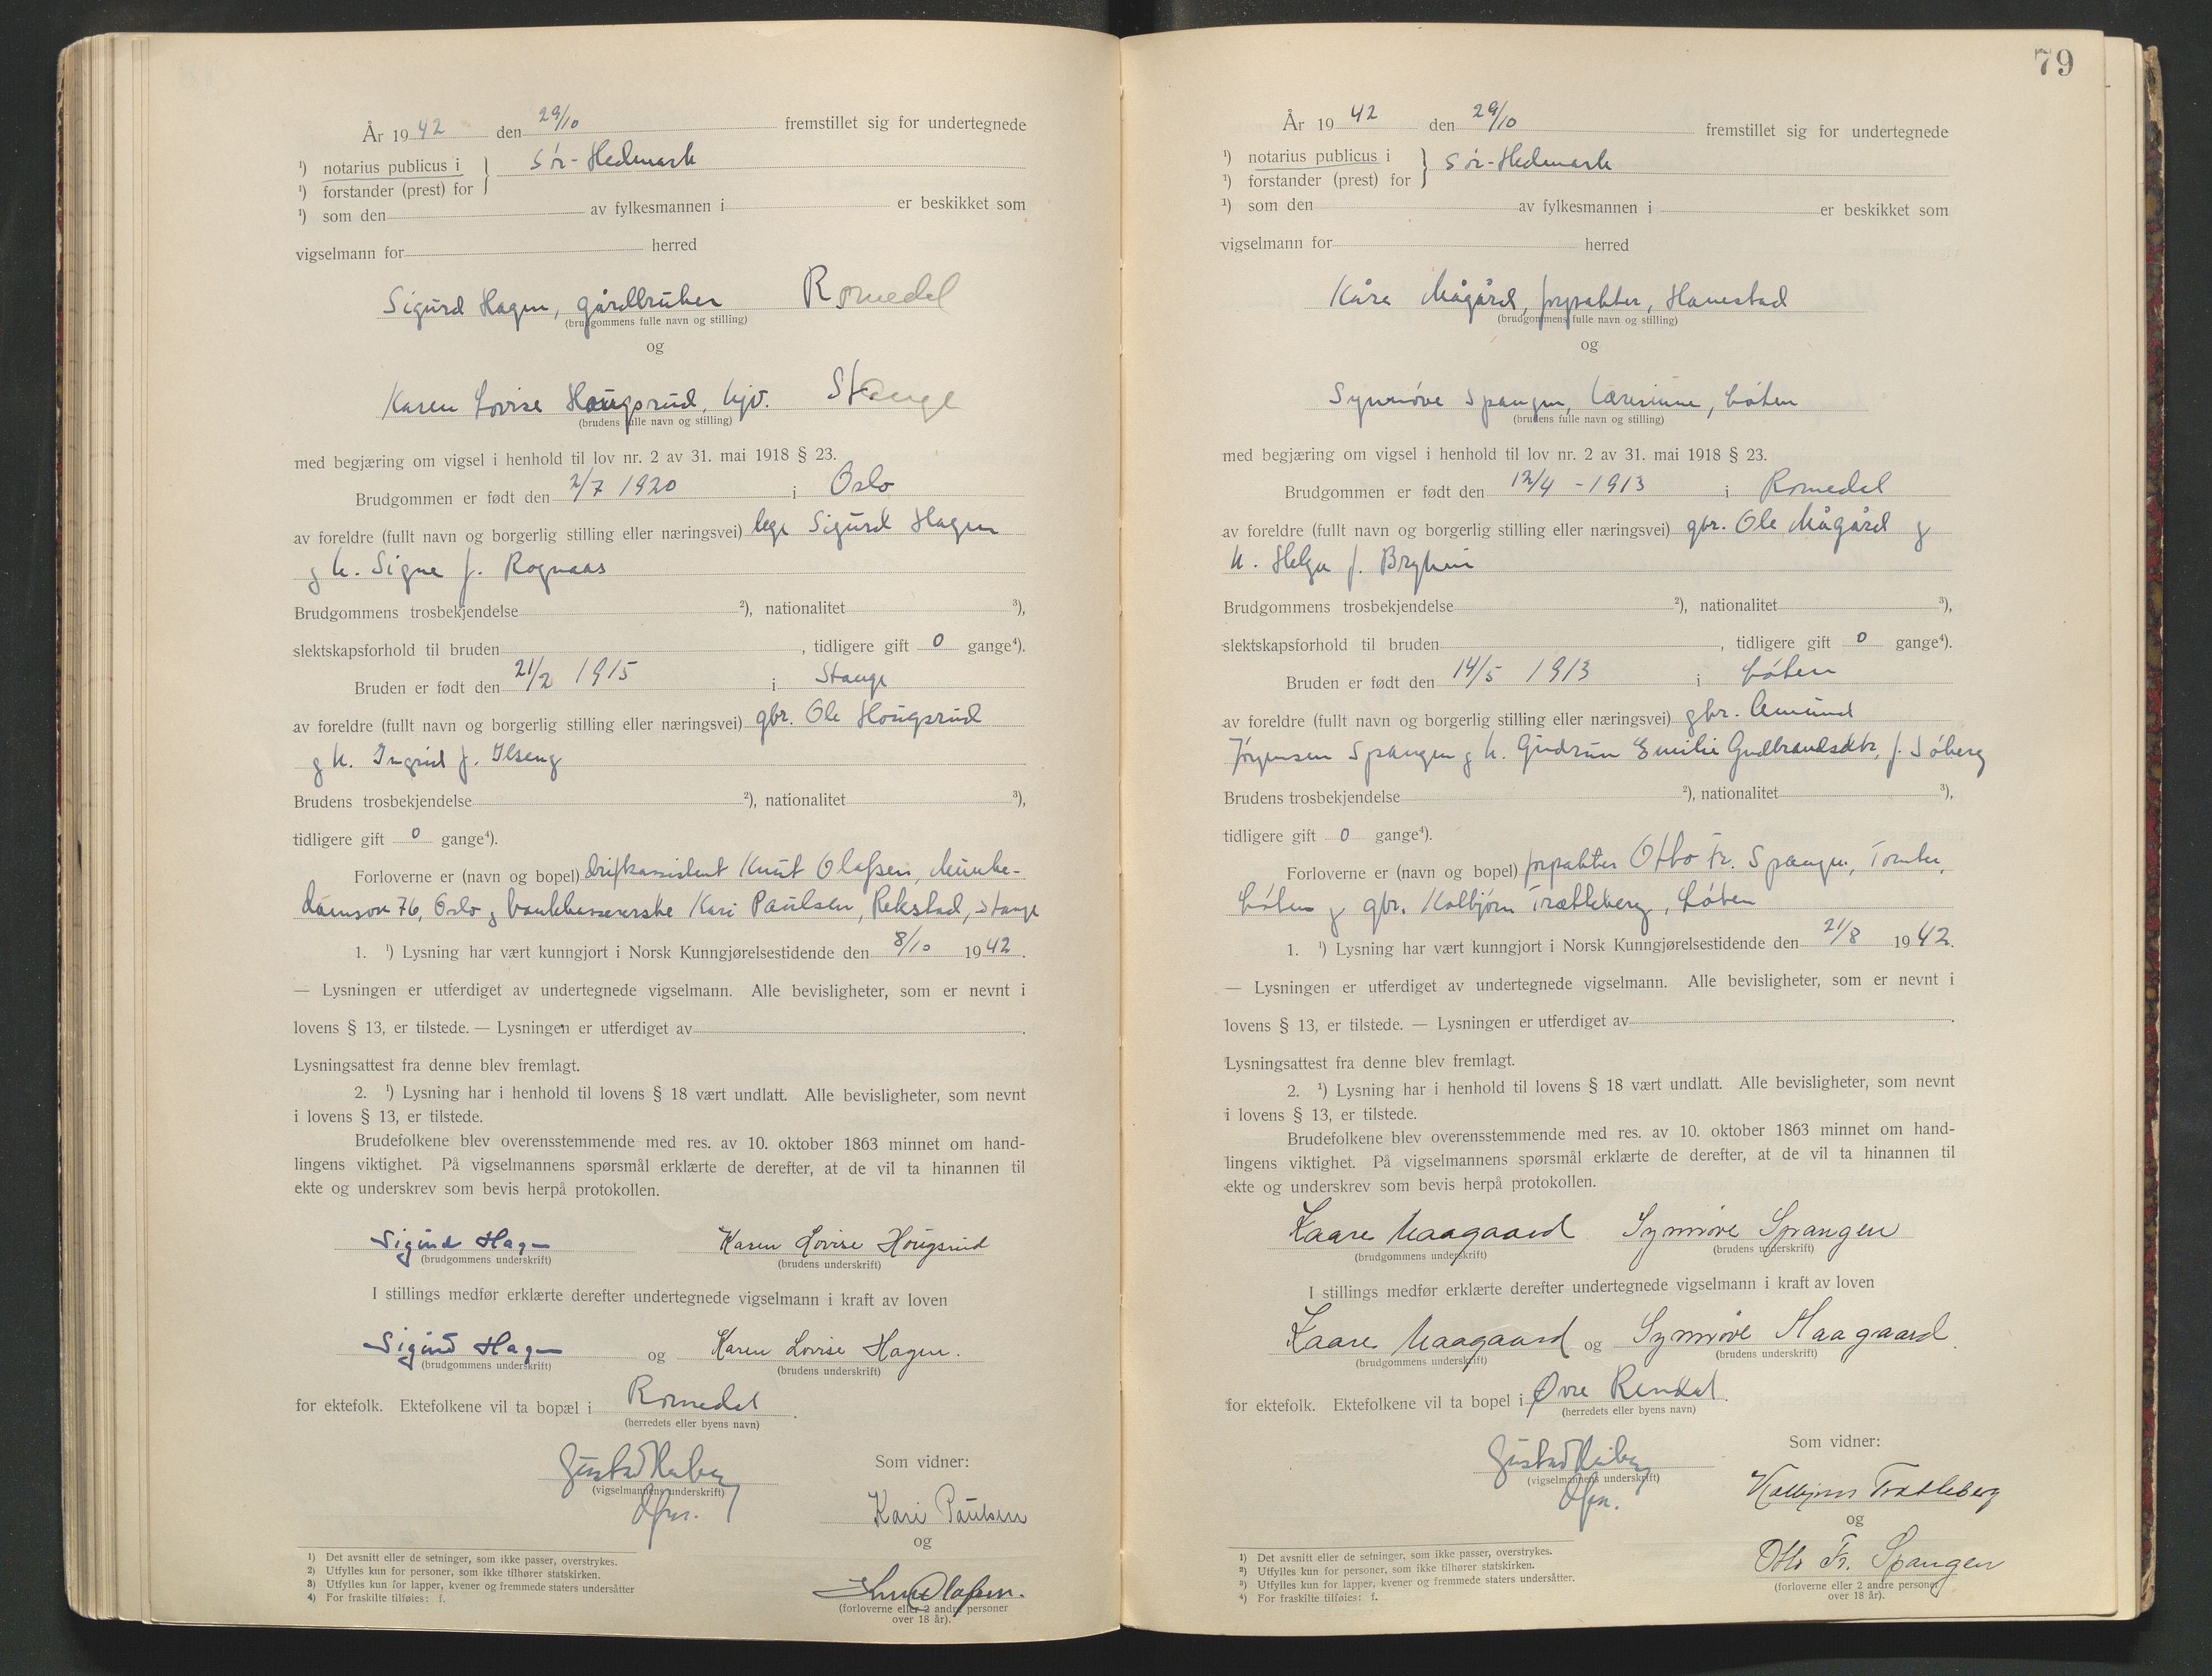 År 1942 den 29/10 fremstillet sig for undertegnede
¹) notarius publicus i } Sør-Hedmark
¹) forstander (prest) for
¹) som den av fylkesmannen i er beskikket som
vigselmann for herred
Sigurd Hagen, gårdbruker Romedal
(brudgommens fulle navn og stilling)
og
Karen Lovise Hougsrud, hjv. Stange
(brudens fulle navn og stilling)
med begjæring om vigsel i henhold til lov nr. 2 av 31. mai 1918 § 23.
Brudgommen er født den 2/7 1920 i Oslo
av foreldre (fullt navn og borgerlig stilling eller næringsvei) lege Sigurd Hagen
og h. Signe f. Rognaas
Brudgommens trosbekjendelse ²), nationalitet ³),
slektskapsforhold til bruden , tidligere gift 0 gange⁴).
Bruden er født den 21/2 1915 i Stange
av foreldre (fullt navn og borgerlig stilling eller næringsvei) gbr. Ole Hougsrud
og h. Ingrid f. Ilseng
Brudens trosbekjendelse ²), nationalitet ³),
tidligere gift 0 gange⁴).
Forloverne er (navn og bopel) driftsassistent Knut Olafsen, Munke-
damsvn 76, Oslo og bankkassererske Kari Paulsen, Rekstad, Stange
1. ¹) Lysning har vært kunngjort i Norsk Kunngjørelsestidende den 8/10 1942.
— Lysningen er utferdiget av undertegnede vigselmann. Alle bevisligheter, som er nevnt i
lovens § 13, er tilstede. — Lysningen er utferdiget av .
Lysningsattest fra denne blev fremlagt.
2. ¹) Lysning har i henhold til lovens § 18 vært undlatt. Alle bevisligheter, som nevnt
i lovens § 13, er tilstede.
Brudefolkene blev overensstemmende med res. av 10. oktober 1863 minnet om hand-
lingens viktighet. På vigselmannens spørsmål erklærte de derefter, at de vil ta hinannen til
ekte og underskrev som bevis herpå protokollen.
Sigurd Hagen Karen Lovise Hougsrud
(brudgommens underskrift) (brudens underskrift)
I stillings medfør erklærte derefter undertegnede vigselmann i kraft av loven
Sigurd Hagen og Karen Lovise Hagen.
(brudgommens underskrift) (brudens underskrift)
for ektefolk. Ektefolkene vil ta bopæl i Romedal.
(herredets eller byens navn)
Som vidner:
(vigselmannens underskrift)
Kari Paulsen
og
Knut Olafsen.
(forloverne eller 2 andre personer
over 18 år).
¹) Det avsnitt eller de setninger, som ikke passer, overstrykes.
²) Utfylles kun for personer, som ikke tilhører statskirken.
³) Utfylles kun for lapper, kvener og fremmede staters undersåtter
⁴) For fraskilte tilføies: f.
79
År 1942 den 29/10 fremstillet sig for undertegnede
¹) notarius publicus i } Sør-Hedmark
¹) forstander (prest) for
¹) som den av fylkesmannen i er beskikket som
vigselmann for herred
Kåre Mågård, forpakter, Hanestad
(brudgommens fulle navn og stilling)
og
Synnøve Spangen, lærerinne, Løten
(brudens fulle navn og stilling)
med begjæring om vigsel i henhold til lov nr. 2 av 31. mai 1918 § 23.
Brudgommen er født den 12/4 - 1913 i Romedal
av foreldre (fullt navn og borgerlig stilling eller næringsvei) gbr. Ole Mågård og
h. Helga f. Bryhni
Brudgommens trosbekjendelse ²), nationalitet ³),
slektskapsforhold til bruden , tidligere gift 0 gange⁴).
Bruden er født den 14/5 1913 i Løten
av foreldre (fullt navn og borgerlig stilling eller næringsvei) gbr. Amund
Jørgensen Spangen og h. Gudrun Emilie Gudbrandsdtr, f. Søberg
Brudens trosbekjendelse ²), nationalitet ³),
tidligere gift 0 gange⁴).
Forloverne er (navn og bopel) forpakter Otto Fr. Spangen, Tomter,
Løten og gbr. Kolbjørn Trætteberg, Løten
1. ¹) Lysning har vært kunngjort i Norsk Kunngjørelsestidende den 21/8 1942.
— Lysningen er utferdiget av undertegnede vigselmann. Alle bevisligheter, som er nevnt i
lovens § 13, er tilstede. — Lysningen er utferdiget av .
Lysningsattest fra denne blev fremlagt.
2. ¹) Lysning har i henhold til lovens § 18 vært undlatt. Alle bevisligheter, som nevnt
i lovens § 13, er tilstede.
Brudefolkene blev overensstemmende med res. av 10. oktober 1863 minnet om hand-
lingens viktighet. På vigselmannens spørsmål erklærte de derefter, at de vil ta hinannen til
ekte og underskrev som bevis herpå protokollen.
Kaare Maagaard Synnøve Spangen
(brudgommens underskrift) (brudens underskrift)
I stillings medfør erklærte derefter undertegnede vigselmann i kraft av loven
Kaare Maagaard og Synnøve Maagaard.
(brudgommens underskrift) (brudens underskrift)
for ektefolk. Ektefolkene vil ta bopel i Øvre Rendal.
(herredets eller byens navn)
Som vidner:
(vigselmannens underskrift)
Kolbjørn Trætteberg
og
Otto Fr. Spangen
(forloverne eller 2 andre personer
over 18 år).
¹) Det avsnitt eller de setninger, som ikke passer, overstrykes.
²) Utfylles kun for personer, som ikke tilhører statskirken.
³) Utfylles kun for lapper, kvener og fremmede staters undersåtter.
⁴) For fraskilte tilføies: f.